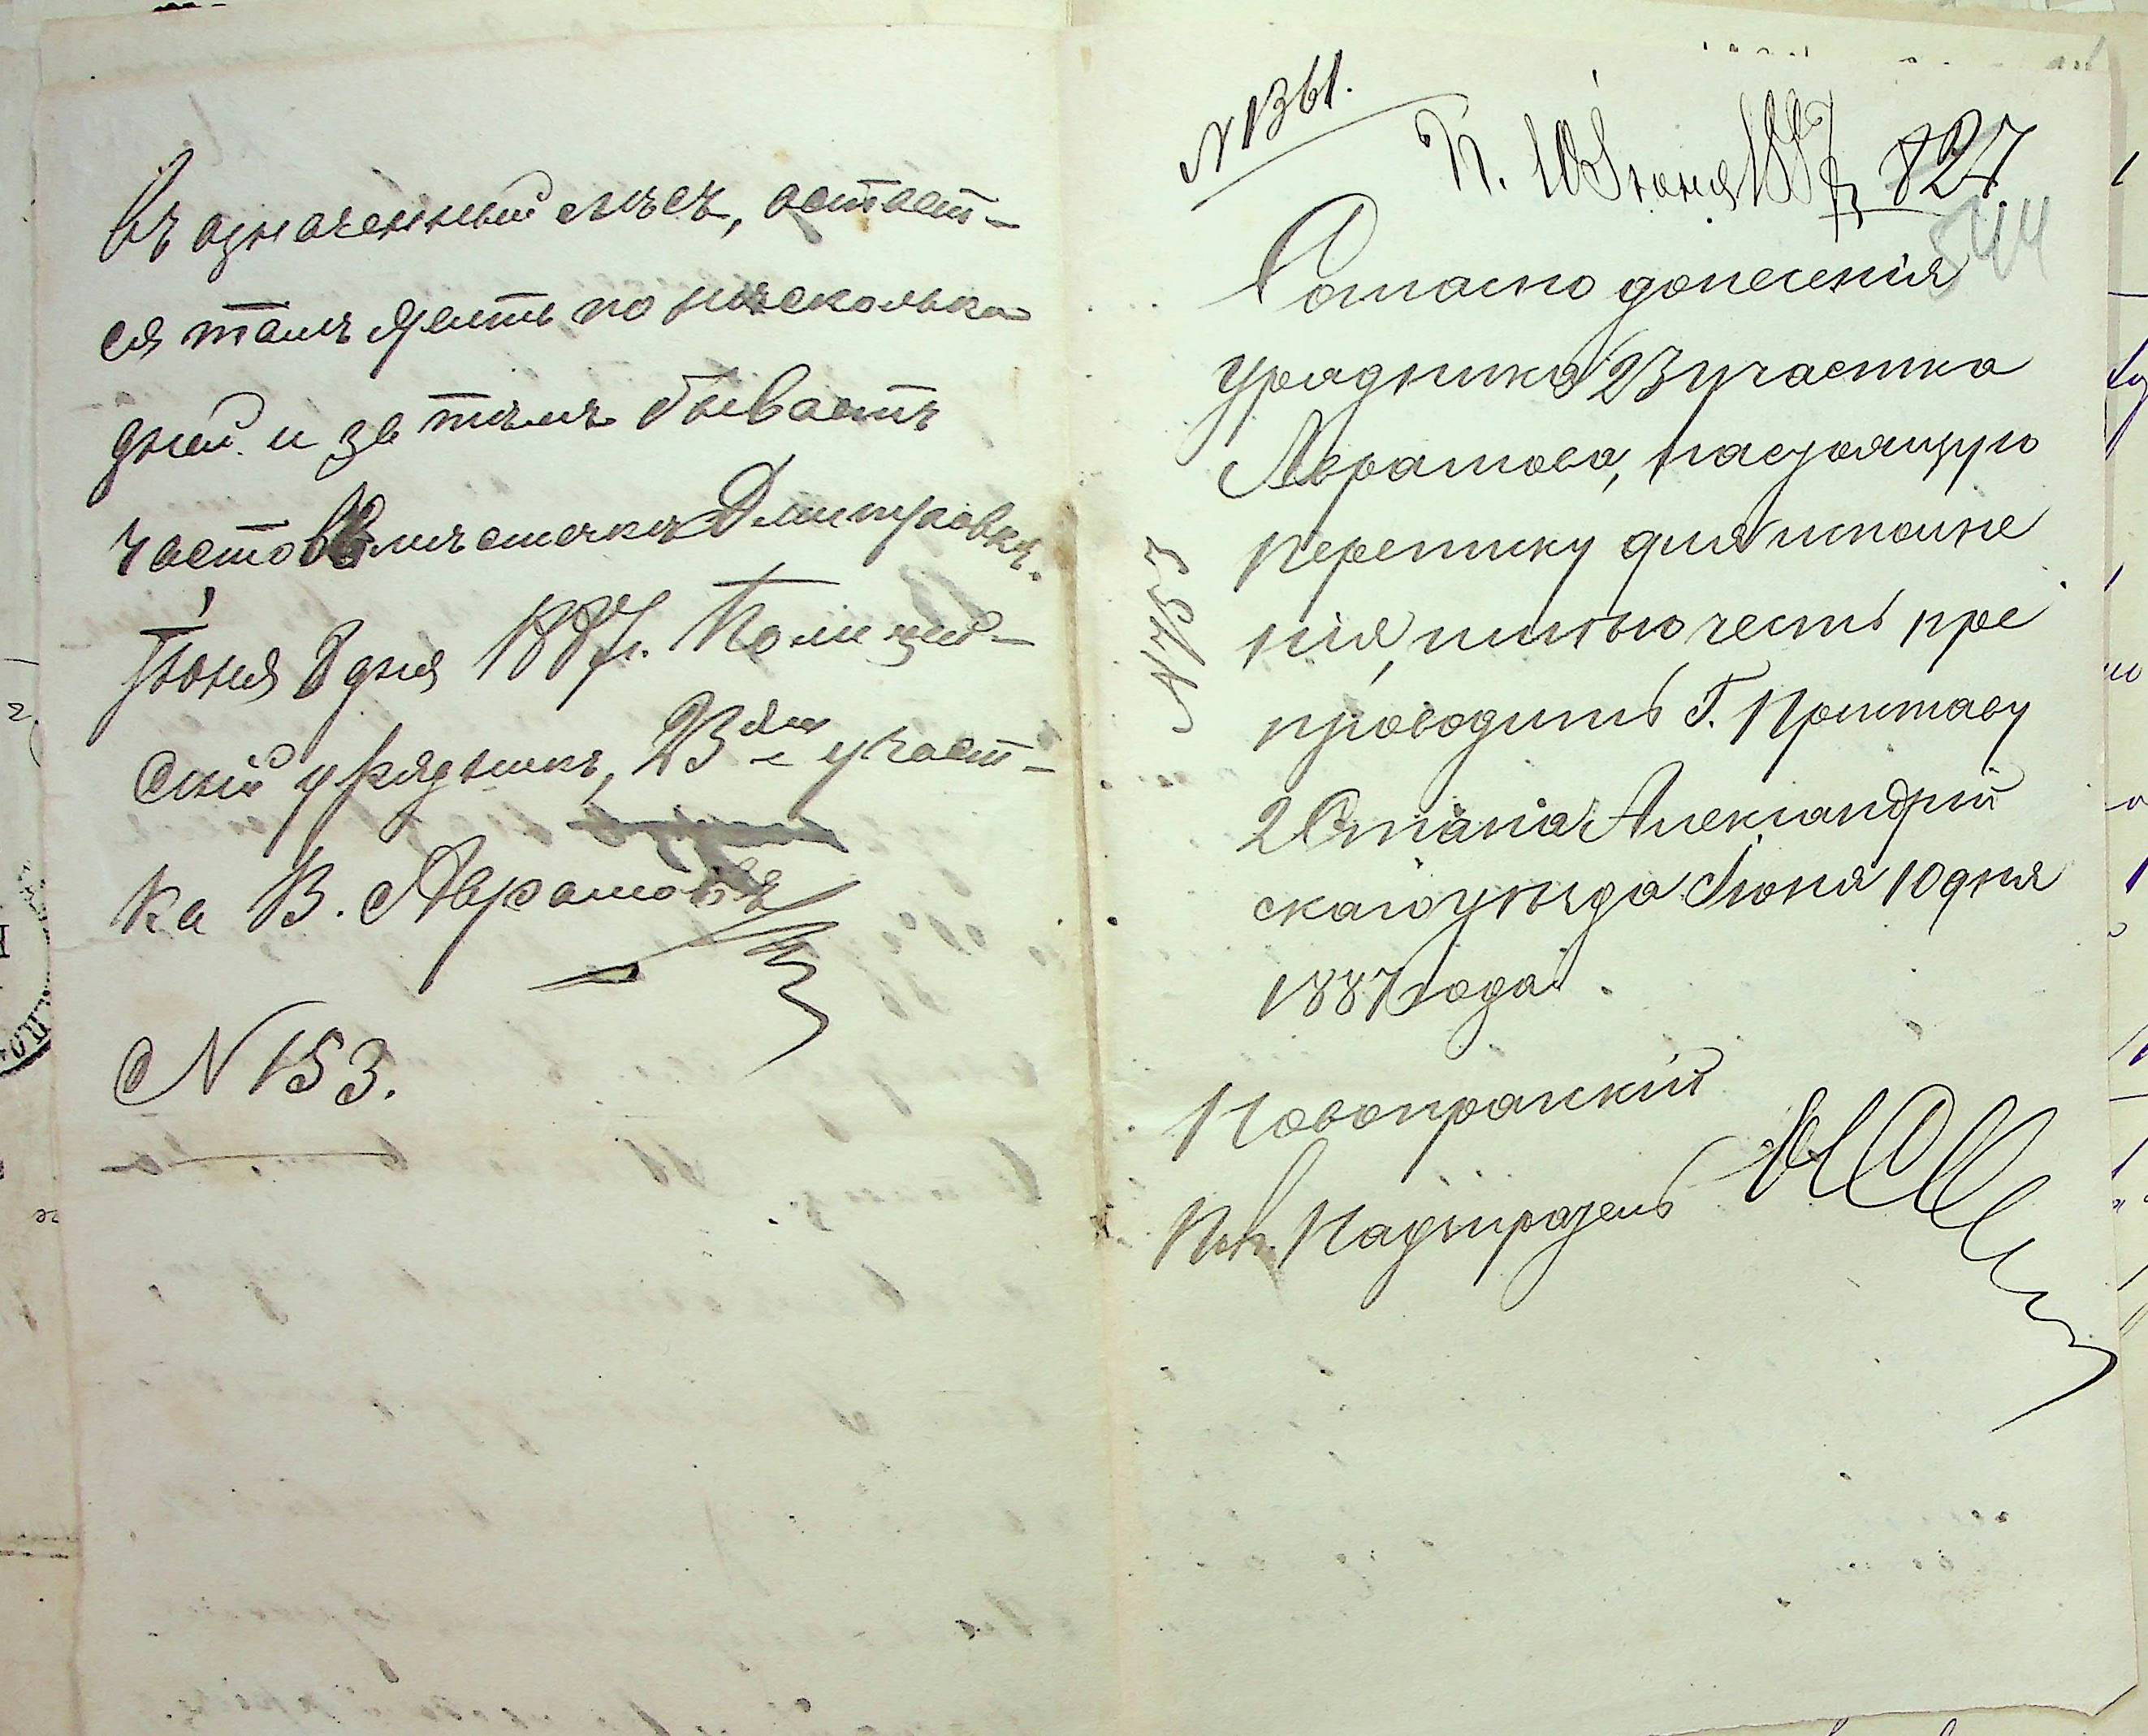 въ означенный лѣсъ, остает-
ся тамъ жить по нѣсколька
дней и за тѣмъ бываетъ
часто въ мѣстечкѣ Дмитровкѣ.
Іюня 8 дня 1887 г. Полицей-
скій урядникъ, 23го участ-
ка В. Аврамовъ
№ 153.
№ 1361.
П. 10 Іюня 1887 г. 827
544
Согласно донесенія
урядника 23 участка
Аврамова, настоящую
переписку для исполне
нія, имѣю честь пре
проводить Г. Приставу
2 Стана Александрій
скаго уѣзда Іюня 10 дня
1887 года.
№ 753
Новопражскій
Пол. Надзиратель